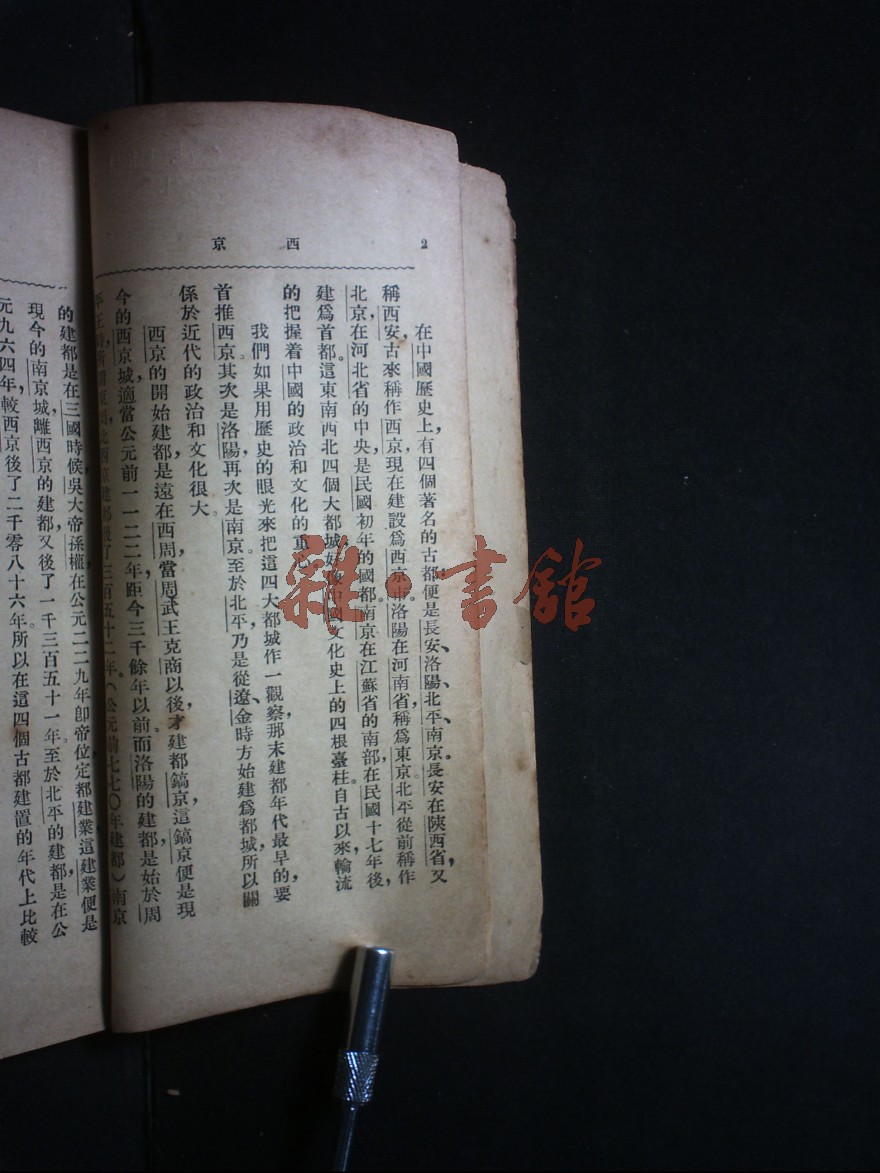 2
西京
在中國歷史上,有四個著名的古都,便是長安、洛陽、北平、南京。長安在陝西省,又
稱西安,古來稱作西京,現在建設爲西京市。洛陽在河南省,稱爲東京。北平從前稱作
北京,在河北省的中央,是民國初年的國都。南京在江蘇省的南部,在民國十七年後,
建爲首都。這東南西北四個大都城,好 中國文化史上的四根臺柱,自古以來,輪流
的把握着中國的政治和文化的重心。
我們如果用歷史的眼光來把這四大都城作一觀察,那末建都年代最早的,要
首推西京,其次是洛陽,再次是南京。至於北平,乃是從遼、金時方始建爲都城,所以關
係於近代的政治和文化很大。
西京的開始建都,是遠在西周,當周武王克商以後,才建都鎬京,這鎬京便是現
今的西京城,適當公元前一一二二年,距今三千餘年以前。而洛陽的建都,是始於周
平王時, 西京建都 了三百五十二年。(公元前七七〇年建都)南京
的建都是在三國時候,吳大帝孫權在公元二二九年卽帝位,定都建業,這建業便是
現今的南京城,離西京的建都又後了一千三百五十一年。至於北平的建都,是在公
元九六四年,較西京後了二千零八十六年。所以在這四個古都建置的年代上比較
雜·書館